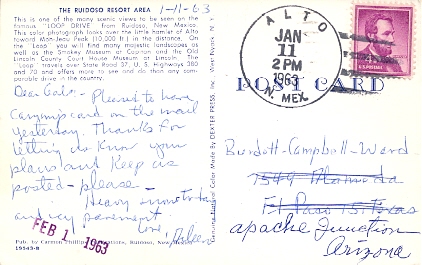 THE RUIDOSO RESORT AREA
1-11-63
This is one of the many scenic views to be seen on the
famous "LOOP DRIVE" from Ruidoso, New Mexico.
This color photograph looks over the little hamlet of Alto
toward Mon-Jeau Peak (10,000 ft.) in the distance. On
the "Loop" you will find many majestic landscapes as
well as the Smokey Museum at Capitan and the Old
Lincoln County Court House Museum at Lincoln. The
"Loop" travels over State Road 37, U. S. Highways 380
and 70 and offers more to see and do than any com-
parable drive in the country.
Dear Gals - Pleased to have
card in the mail
yesterday. Thanks for
letting us know your
plans and keep us
posted - please -
Heavy snow today
and icy pavement.
Love,
FEB 1 1963
Pub. by Carmen Phillips, Ruidoso, New Mexico
19543-B
Genuine Natural Color Made By DEXTER PRESS, Inc. West Nyack, N. Y.
ALTO
JAN
11
2 PM
1963
N. MEX.
U.S. POSTAGE
POST CARD
Burdett-Campbell-Ward
1549 Alameda
El Paso 15, Texas
Apache Junction
Arizona